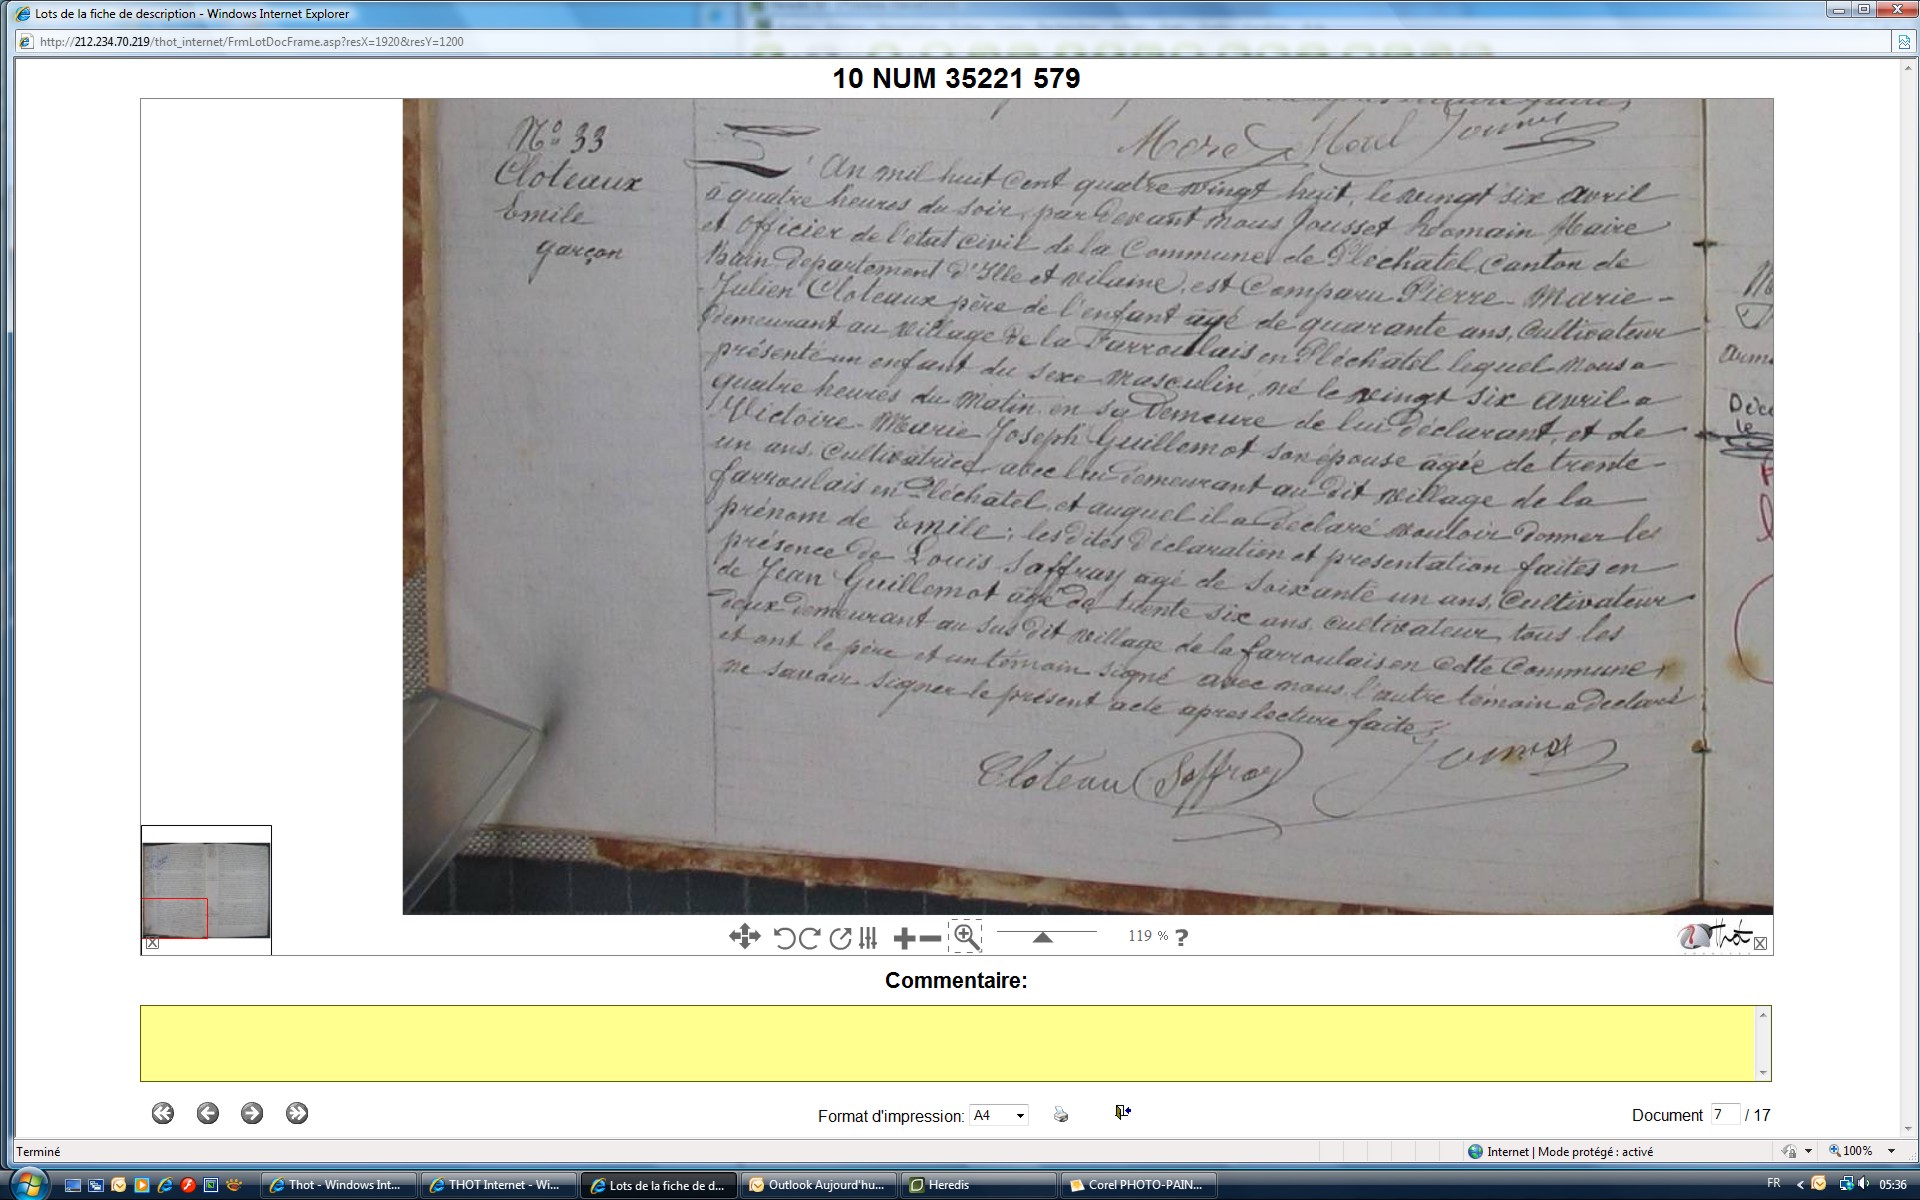 Lots de la fiche de description - Windows Internet Explorer
http://212.234.70.219/thot_internet/FrmLotDocFrame.asp?resX=1920&resY=1200
10 NUM 35221 579
N° 33
Cloteaux
Emile
garçon
Morel
L'An mil huit Cent quatre vingt huit, le vingt six avril
à quatre heures du soir, par devant nous Jousset Romain Maire
et officier de l'état civil de la Commune de Pléchâtel, canton de
Bain, département d'Ille et Vilaine, est Comparu Pierre-Marie-
Julien Cloteaux père de l'enfant âgé de quarante ans, Cultivateur
demeurant au village de la Farroulais en Pléchâtel lequel nous a
présenté un enfant du sexe masculin, né le vingt six avril a
quatre heures du matin, en sa demeure de lui déclarant, et de
Victoire-Marie Joseph Guillemot son épouse âgée de trente-
un ans, Cultivatrice avec lui demeurant au dit village de la
farroulais en Pléchâtel, et auquel il a déclaré vouloir donner les
prénom de Emile; les dites déclaration et presentation faites en
présence de Louis Saffray âgé de soixante un ans, Cultivateur
de Jean Guillemot âgé de trente six ans, cultivateur, tous les
deux demeurant au sus dit village de la farroulais en cette Commune,
et ont le père et un témoin signé avec nous, l'autre témoin a déclaré
ne savoir signer le présent acte après lecture faite
Cloteau Saffray
Déc
le
Thot
119 % ?
Commentaire:
Format d'impression: A4
Document 7 / 17
Terminé
Internet | Mode protégé : activé
100%
Thot - Windows Int...
THOT Internet - Wi...
Lots de la fiche de d...
Outlook Aujourd'hu...
Heredis
Corel PHOTO-PAIN...
FR
05:36